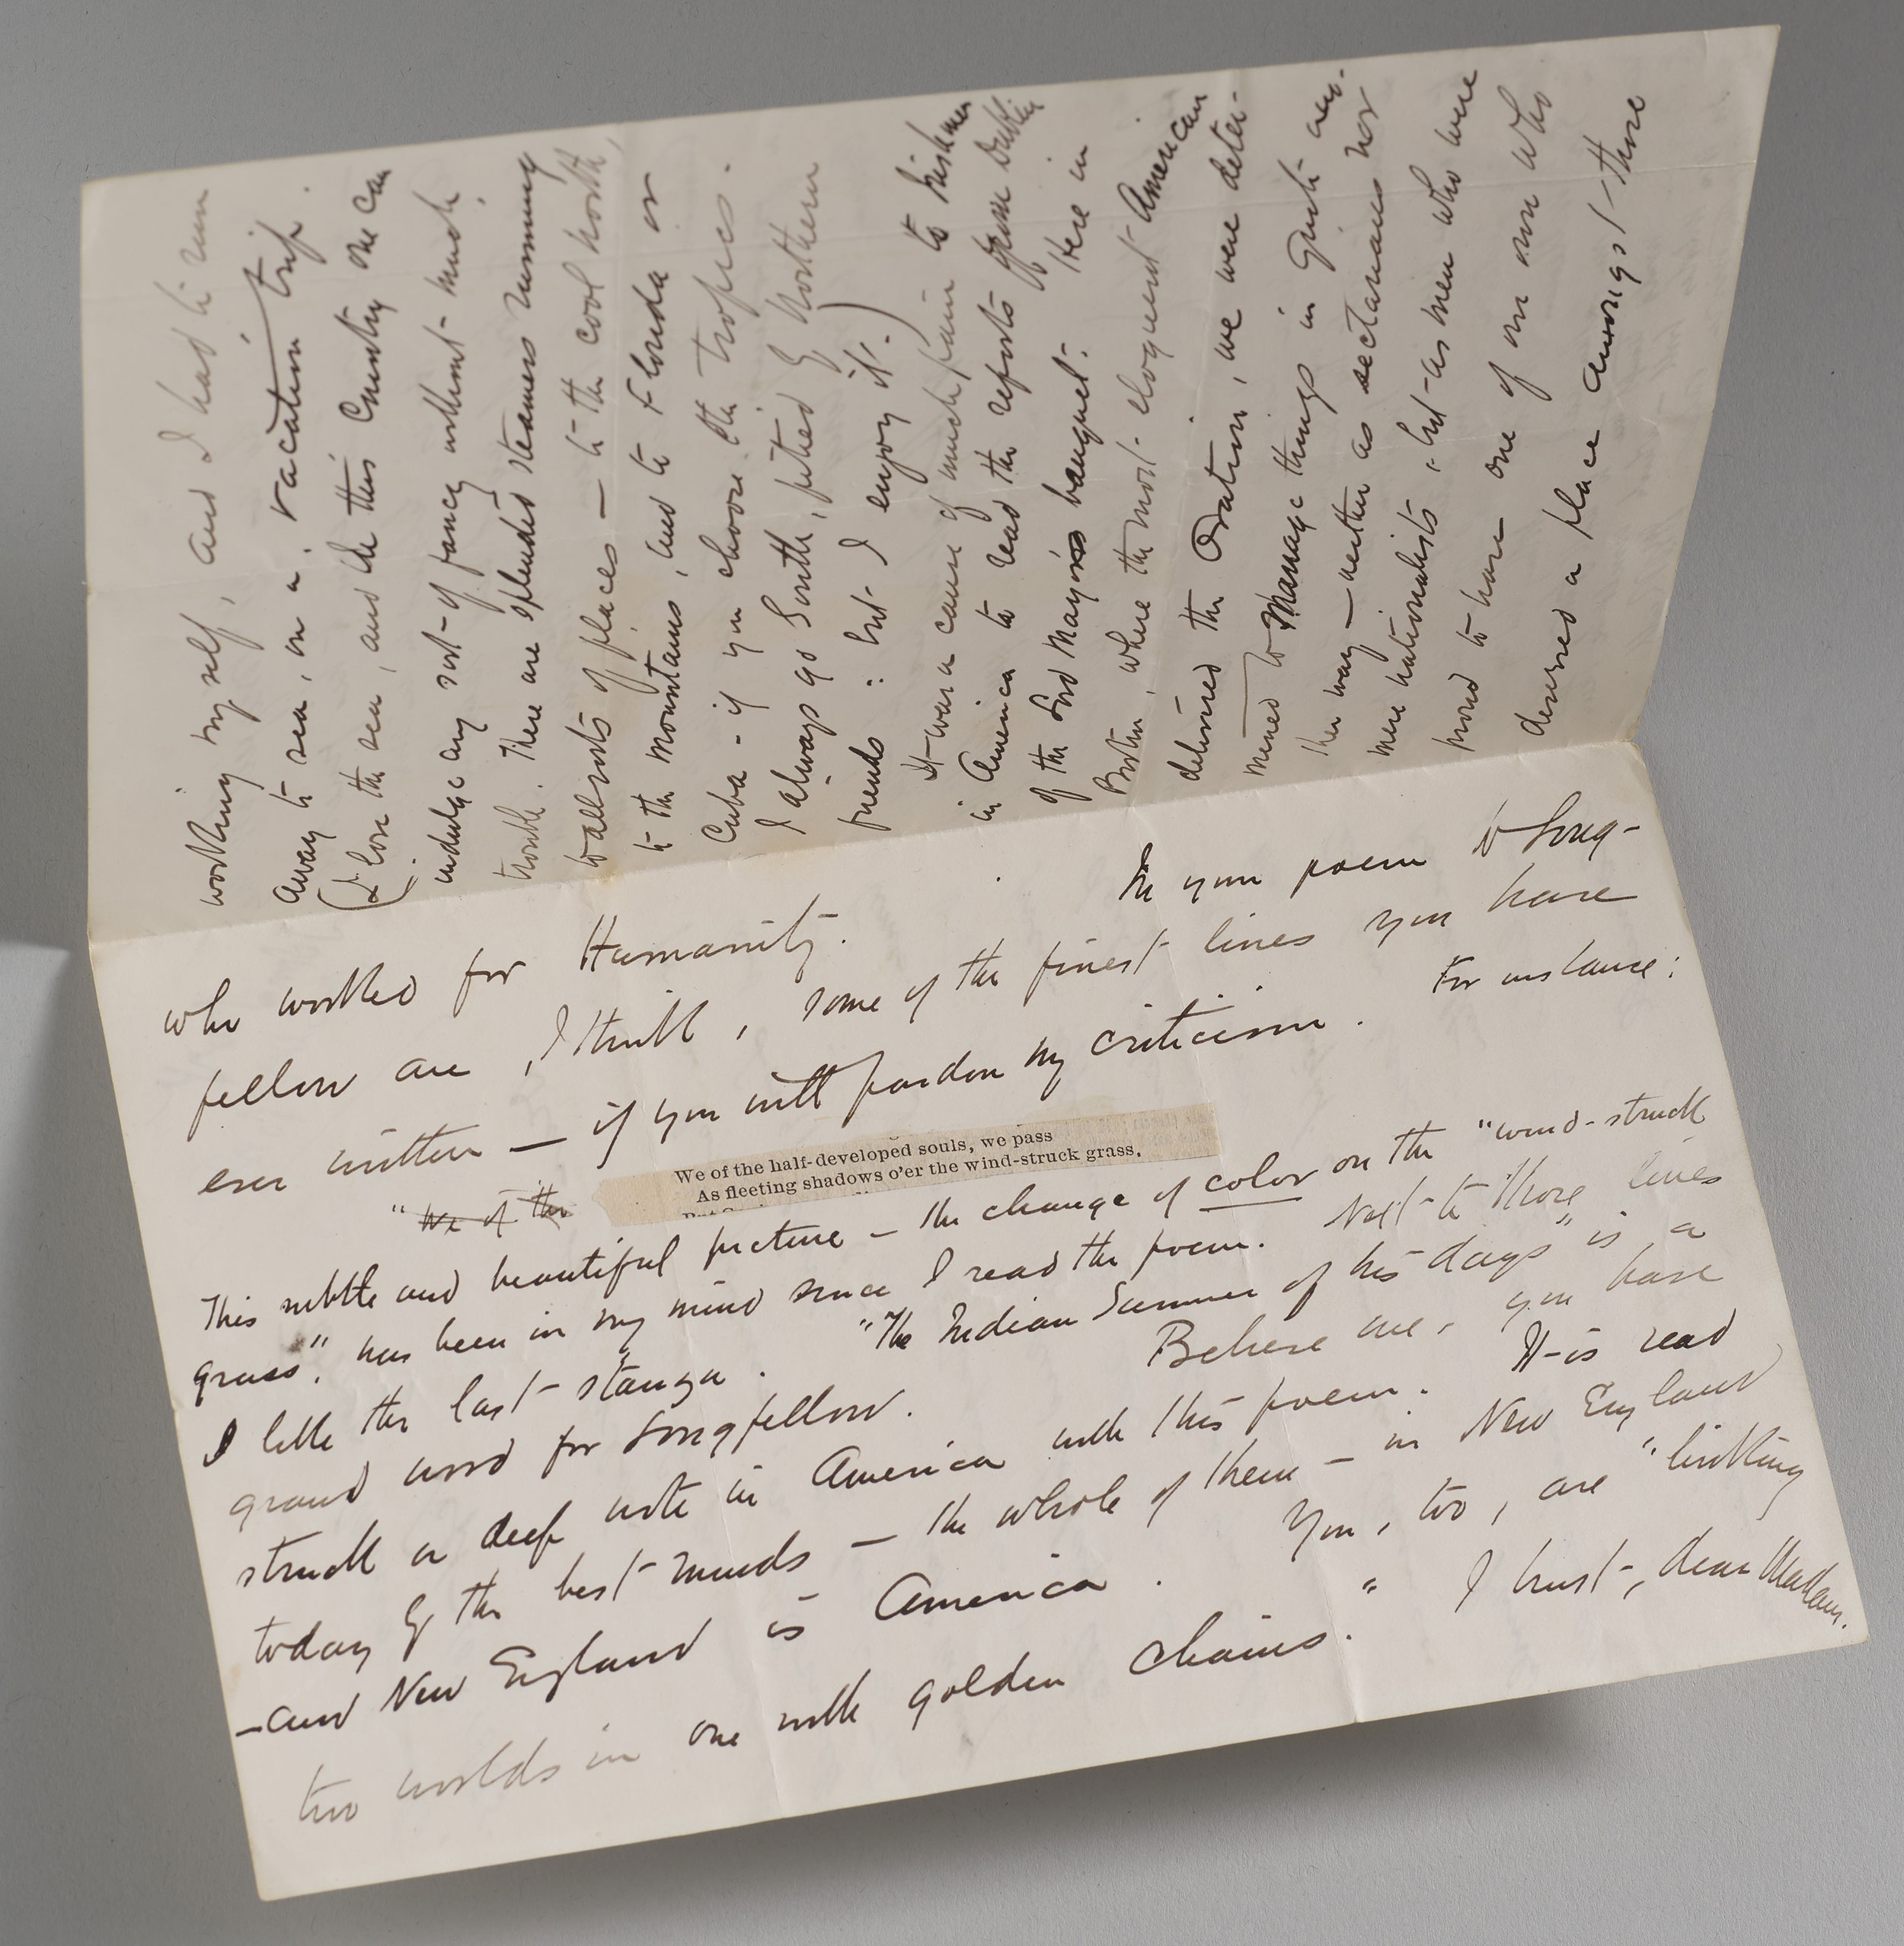 working myself, and I had to run
away to sea, on a vacation trip.
(I love the sea, and like this Country one can
indulge any sort of fancy without much
trouble. There are splendid steamers running
to all sorts of places — to the cool north,
to the mountains, and to Florida or
Cuba - if you choose the tropics.
I always go South, pitied by Northern
friends: but I enjoy it.)
It was a cause of much pain to Irishmen
in America to read the reports from Dublin
of the Lord Mayor's banquet. Here in
Boston, where the most eloquent American
delivered the Oration, we were deter-
mined to manage things in quite ano-
ther way — neither as sectarians nor
mere nationalists, but as men who were
proud to have one of our own who
deserved a place amongst those
who worked for Humanity. In your poem to Long-
fellow are, I think, some of the finest lines you have
ever written — if you will pardon my criticism. For instance:
" We of the
We of the half-developed souls, we pass
As fleeting shadows o'er the wind-struck grass,
This subtle and beautiful picture — the change of color on the "wind-struck
grass", has been in my mind since I read the poem. Next to those lines
I like the last stanza. "The Indian Summer of his days" is a
grand word for Longfellow. Believe me, you have
struck a deep note in America with this poem. It is read
today by the best minds — the whole of them — in New England
— and New England is America. You, too, are "linking
two worlds in one with golden chains." I trust, dear Madam.